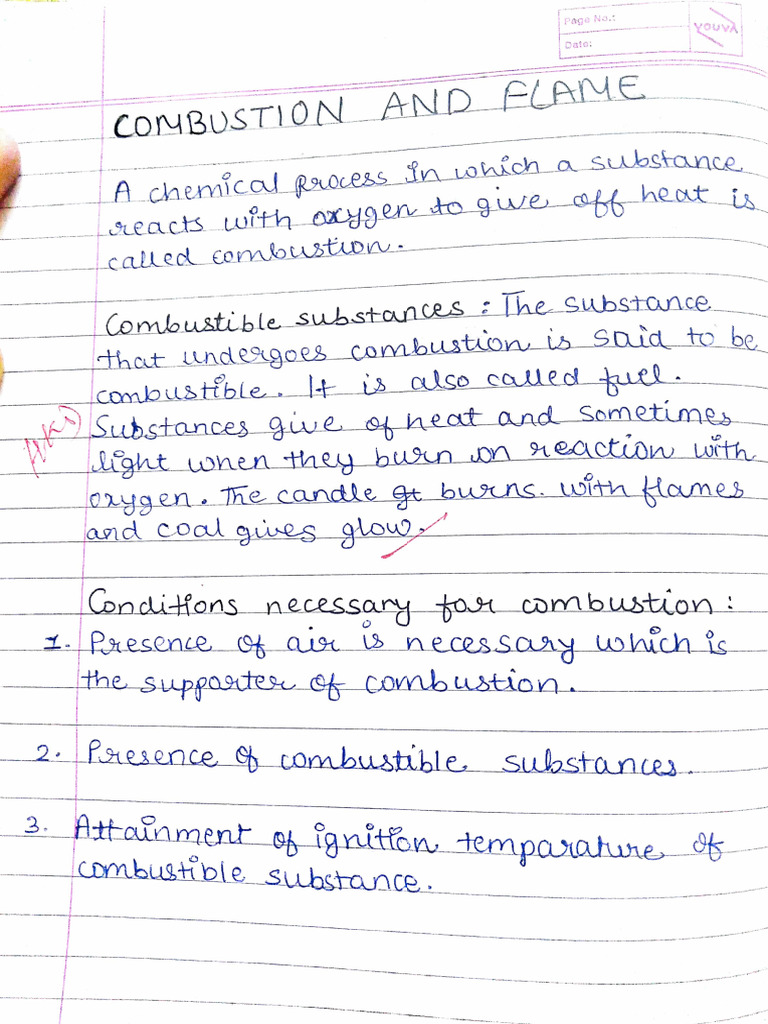 Page No.:
Date:
YOUVA
COMBUSTION AND FLAME
A chemical process in which a substance
reacts with oxygen to give off heat is
called combustion.
Combustible substances : The substance
that undergoes combustion is said to be
combustible. It is also called fuel.
Substances give of heat and sometimes
light when they burn on reaction with
oxygen. The candle gt burns. with flames
and coal gives glow.
Conditions necessary for combustion :
1. Presence of air is necessary which is
the supporter of combustion.
2. Presence of combustible substances.
3. Attainment of ignition temparature of
combustible substance.